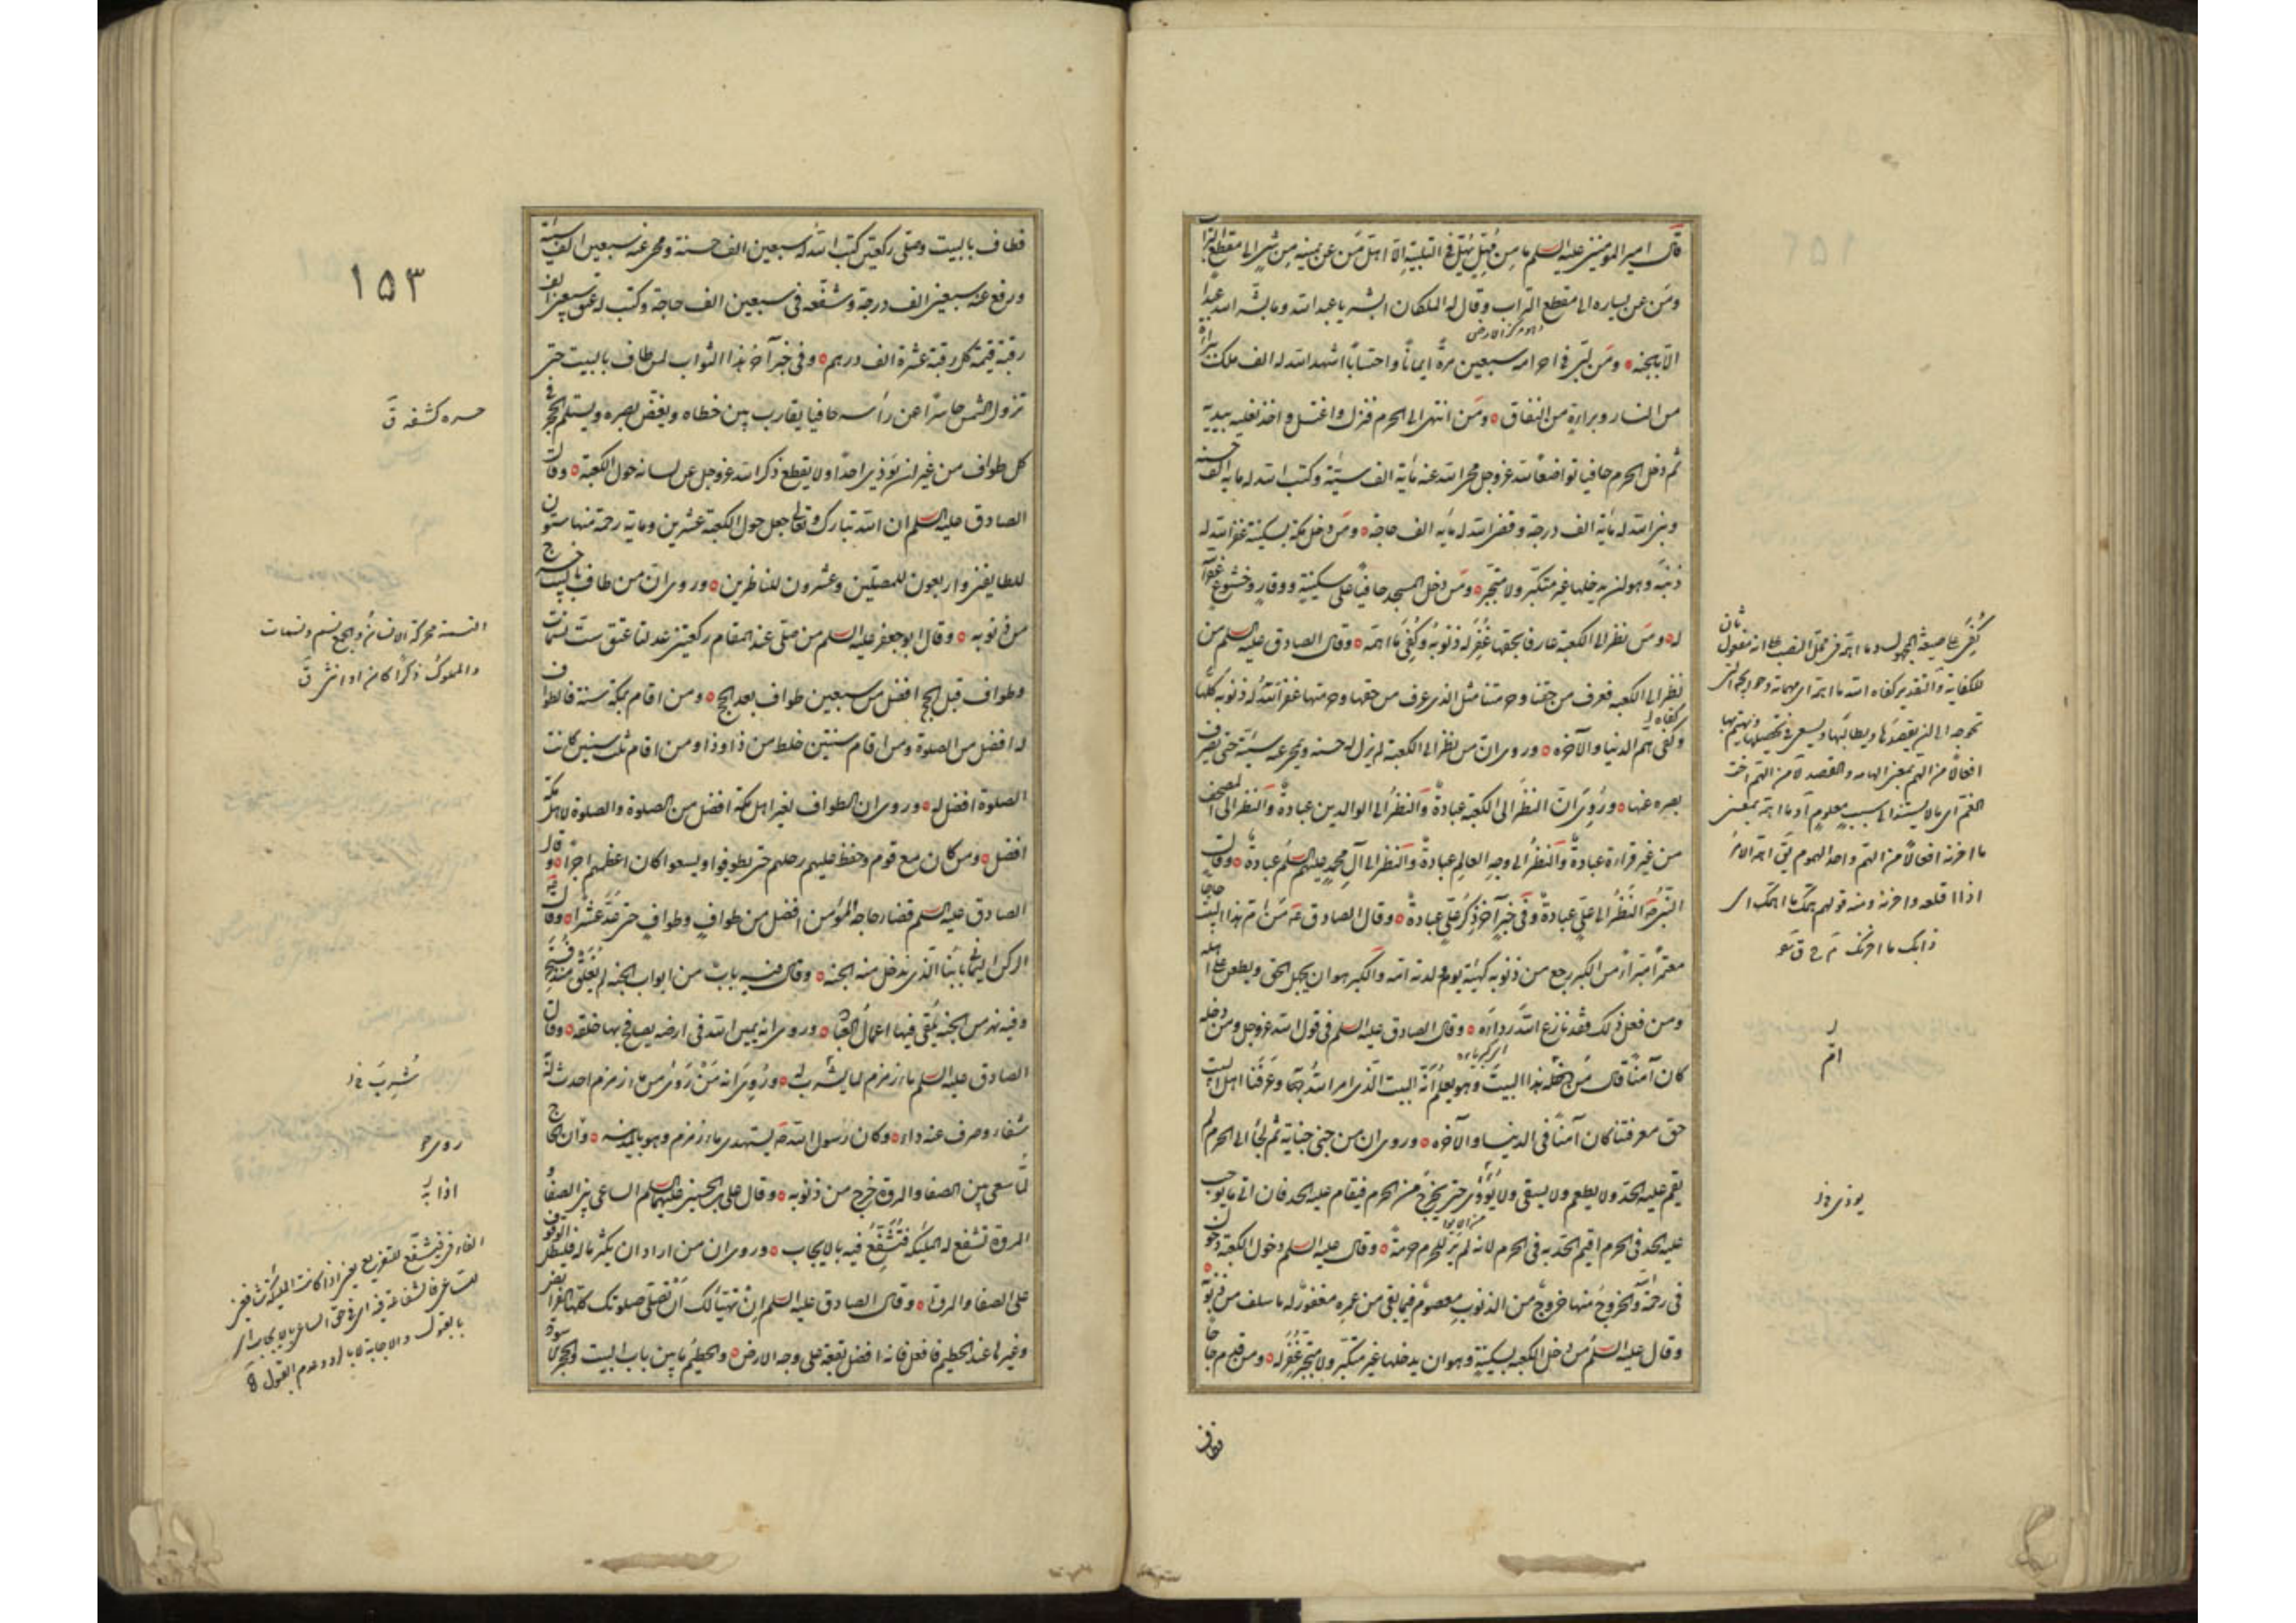 قال امير المؤمنين عليه السلم ما من مُهِلّ يُهِلّ في التلبية الا اهلّ مَن عن يمينه من شئ الى مقطع التراب
ومَن عن يساره الى مقطع التراب وقال له الملكان ابشر يا عبد الله وما يبشّر الله عبدا
الا بالجنه ومَن لبّى في احرامه سبعين مرةً ايماناً واحتساباً اشهد الله له الف ملك ببراءة
من النار وبراءة من النفاق ومَن انتهى الى الحرم فنزل واغتسل واخذ نعليه بيديه
ثم دخل الحرم حافيا تواضعاً لله عزوجل محى الله عنه مأية الف سيّئة وكتب الله له مأية الف حسنة
وبنى الله له مأية الف درجة وقضى الله له مأية الف حاجة ومَن دخل مكة بسكينة غفر الله له
ذنبَه وهو ان يدخلها غير متكبّر ولا متجبّر ومَن دخل المسجد حافياً على سكينة ووقارٍ وخشوع غفر الله
له ومَن نظر الى الكعبة عارفا بحقها غُفِرَ له ذنوبُه وكُفِيَ ما اهمّه وقال الصادق عليه السلم من
نظر الى الكعبه فعرف من حقنا وحرمتنا مثل الذى عرف من حقها وحرمتها غفر الله له ذنوبه كلّها
وكفى همّ الدنيا والآخرة وروى ان من نظر الى الكعبة لم يزل له حسنه ويمحى عنه سيّئة حتى يصرف
بصره عنها ورُوِىَ ان النظرَ الى الكعبة عبادةٌ والنظرَ الى الوالدين عبادةٌ والنظرَ الى المصحف
من غير قراءة عبادةٌ والنظرُ الى وجهِ العالِمِ عبادةٌ والنظرَ الى آلِ محمدٍ عليهم السلم عبادةٌ وقال
النبى ص النظرُ الى علىّ عبادةٌ وفى خبرٍ آخر ذِكرُ علىّ عبادةٌ وقال الصادق ع مَن امّ هذا البيت حاجا او
معتمراً مبرّاً من الكبر رجع من ذنوبه كهيئة يوم ولدته امه والكبر هو ان يجهل الحق ويطعن على اهله
ومن فعل ذلك فقد نازع اللهَ رداءَه وقال الصادق عليه السلم فى قول الله عزوجل ومن دخله
كان آمناً قال مَن دخله هذا البيتَ وهو يعلم انّه البيت الذى امر اللهُ به وعرفنا اهل البيت
حق معرفتنا كان آمناً فى الدنيا والآخره وروى ان من جنى جناية ثم لجأ الى الحرم لم
يقم عليه الحدّ ولا يطعم ولا يسقى ولا يُؤوى حتى يخرجَ من الحرم فيقام عليه الحد فان اتى ما يوجب
عليه الحد فى الحرم اقيم الحدّ به فى الحرم لانه لم يَرَ للحرم حرمةً وقال عليه السلم دخول الكعبة دخول
فى رحمة الله والخروجُ منها خروجٌ من الذنوبِ معصومٌ فيما بقى من عمرِه مغفورٌ له ما سلف من ذنوبه
وقال عليه السلم مَن دخل الكعبه بسكينةٍ وهو ان يدخلها غير متكبّر ولا متجبّر غُفِرَ له ومن قدم حاجا
فطاف
كُفِىَ على صيغة المجهول وما اهمّه فى محلّ النصب على انه مفعول ثان
للكفاية والتقدير كفاه الله ما اهمّه اى مهماته وحوايجه التى
اذا اقلعه واحزنه ومنه قولهم همّك ما اهمّك اى
اذابك ما احزنك
امّ
يوذى
١٥٣
فطاف بالبيت وصلى ركعتين كتب الله له سبعين الف حسنة ومحى عنه سبعين الف سيئة
ورفع عنه سبعين الف درجة وشفّعه فى سبعين الف حاجة وكتب له عتق سبعين الف
رقبة قيمة كل رقبة عشرة الف درهم وفى خبر آخر هذا الثواب لمن طاف بالبيت حتى
تزول الشمس حاسرًا عن رأسه حافيا يقارب بين خطاه ويغضّ بصره ويستلم الحجر فى
كل طواف من غير ان يؤذى احدًا ولا يقطع ذكر الله عزوجل عن لسانه حول الكعبة وقال
الصادق عليه السلم ان الله تبارك وتعالى جعل حول الكعبة عشرين ومأية رحمة منها ستون
للطايفين واربعون للمصلّين وعشرون للناظرين وروى ان من طاف بالبيت خرج
من ذنوبه وقال ابو جعفر عليه السلم من صلّى عند المقام ركعتين عدلتا عتق ستّ نسمات
وطواف قبل الحج افضل من سبعين طواف بعد الحج ومن اقام بمكة سنة فالطواف
له افضل من الصلوة ومن اقام سنتين خلط من ذا وذا ومن اقام ثلث سنين كانت
الصلوة افضل له وروى ان الطواف لغير اهل مكة افضل من الصلوة والصلوة لاهل مكة
افضل ومن كان مع قوم وحفظ عليهم رحلهم حتى يطوفوا ويسعوا كان اعظمهم اجرًا وقال
الصادق عليه السلم قضاء حاجة المؤمن افضل من طوافٍ وطوافٍ حتى عدّ عشرا وقال
الركن اليمانى بابنا الذى يدخل منه الجنة وقال فيه بابٌ من ابواب الجنه لم يُغلَق منذ فُتِحَ
وفيه نهر من الجنه يُلقى فيها اعمال العباد وروى انه يمين الله فى ارضه يصافح بها خلقه وقال
الصادق عليه السلم ماء زمزم لما يشرب له ورُوِىَ انه مَن رَوِىَ من ماء زمزم احدث له
شفاء وصرف عنه داء وكان رسول الله ص يستهدى ماء زمزم وهو بالمدينه وان الحاج
لمّا سعى بين الصفا والمروة خرج من ذنوبه وقال على بن الحسين عليهما السلم الساعى بين الصفا و
المروة تشفع له المليكة فتُشَفَّعُ فيه بالايجاب وروى ان من اراد ان يكثر ماله فليطل الوقوف
على الصفا والمروة وقال الصادق عليه السلم اِن تهيّأ لك اَن تصلّى صلوتك كلها الفرايض
وغيرها عند الحطيم فافعل فانه افضل بقعة على وجه الارض والحطيم ما بين باب البيت والحجر الاسود
حسره كشفه ق
النسمة محركة الانسان والجمع نسم ونسمات
والمملوك ذكرًا كان او انثى ق
شُرِبَ
روى
اذا
الفاء فى فيشفّع للتفريع يعنى اذا كانت المليكة شافعين